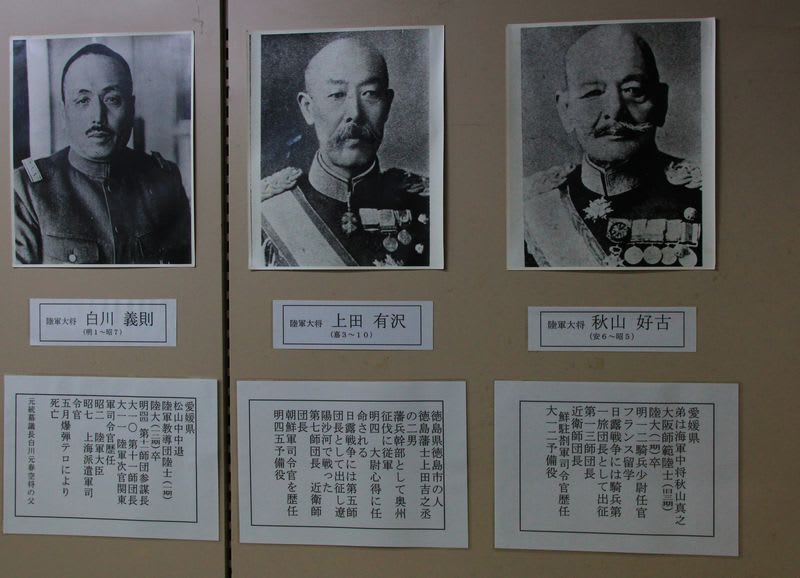 陸軍大将 白川 義則
(明1～昭7)
愛媛県
松山中中退
陸軍教導団陸士(一期)
陸大(一二期)卒
明四四 第十一師団参謀長
大一〇 第十一師団長
大一一 陸軍次官関東
軍司令官歴任
昭二 陸軍大臣
昭七 上海派遣軍司
令官
五月爆弾テロにより
死亡
元統幕議長白川元春空将の父
陸軍大将 上田 有沢
(嘉3～10)
徳島県徳島市の人
徳島藩士上田吉之丞
の二男
藩兵幹部として奥州
征伐に従軍
明四 大尉心得に任
命される
日露戦争には第五師
団長として出征し遼
陽沙河で戦った
第七師団長 近衛師
団長
朝鮮軍司令官を歴任
明四五予備役
陸軍大将 秋山 好古
(安6～昭5)
愛媛県
弟は海軍中将秋山真之
大阪師範陸士(旧三期)
陸大(一期)卒
明一二騎兵少尉任官
フランス留学
日露戦争には騎兵第
一旅団長として出征
第一三師団長
近衛師団長
鮮駐剳軍司令官歴任
大一二予備役